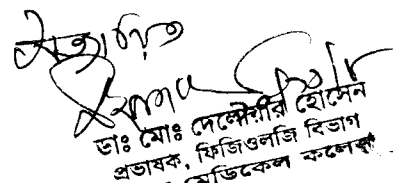 সত্যায়িত
ডাঃ মোঃ দেলোয়ার হোসেন
প্রভাষক, ফিজিওলজি বিভাগ
মেডিকেল কলেজ